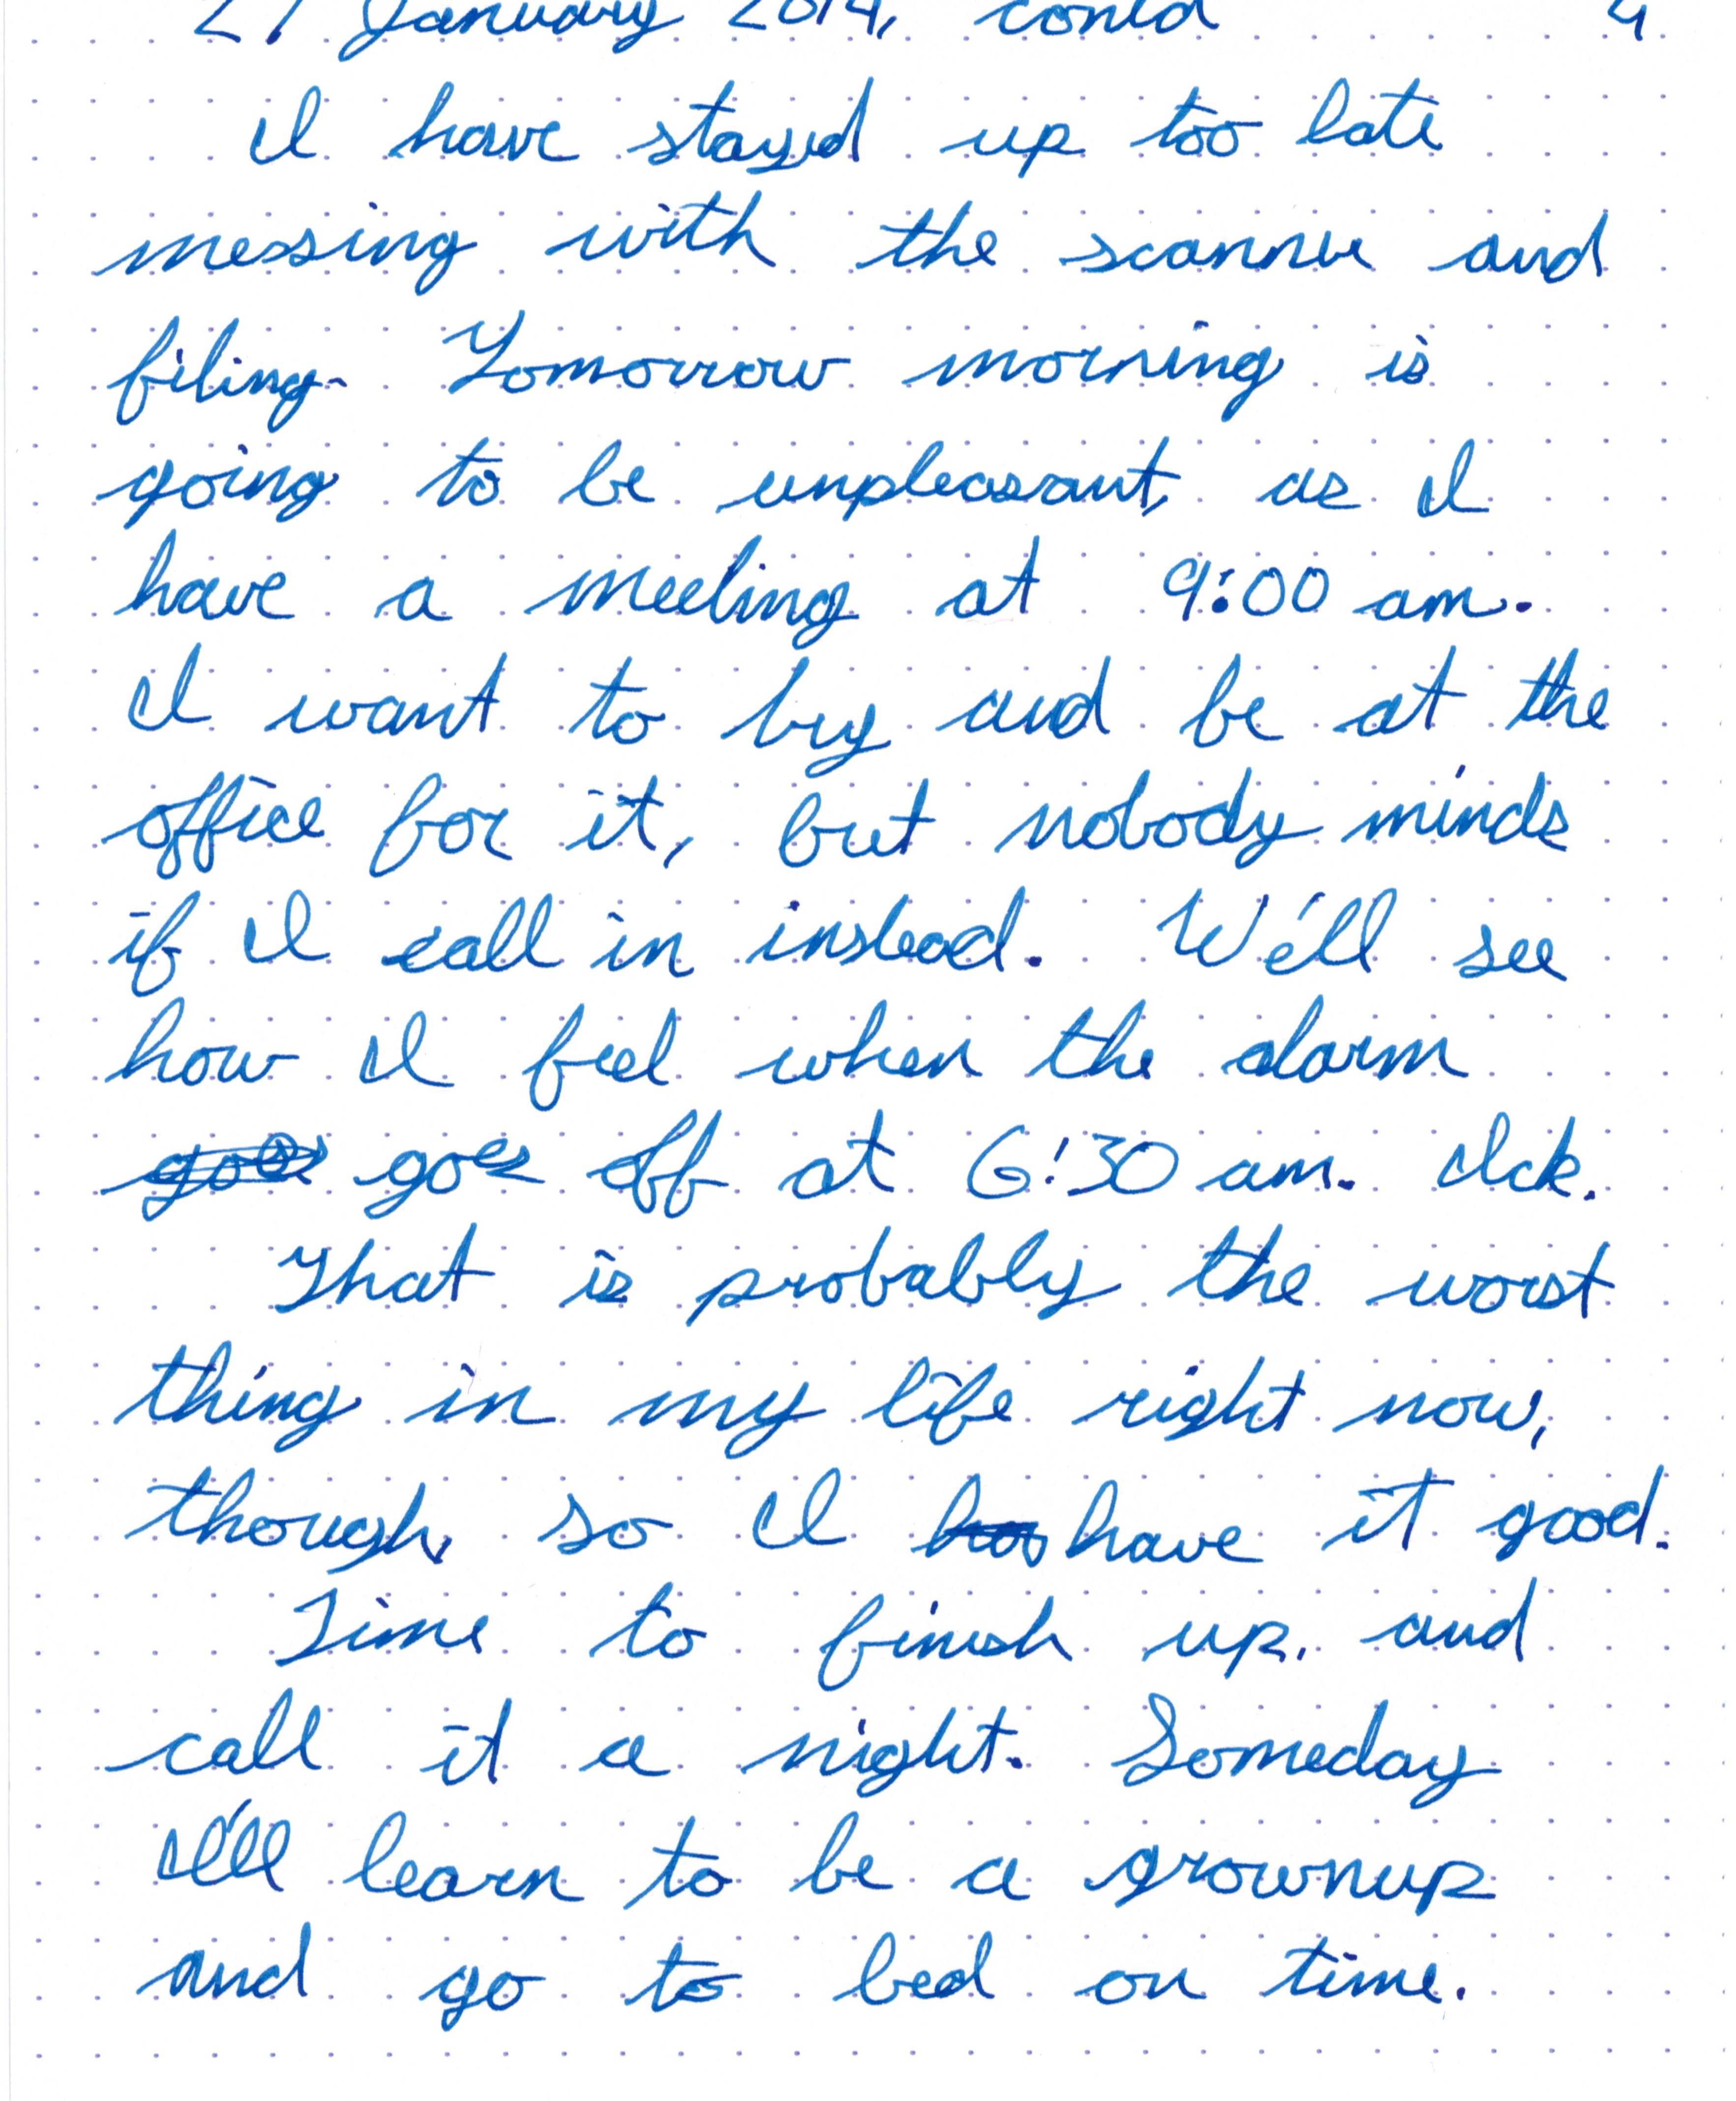 27 January 2014, contd 4
I have stayed up too late
messing with the scanner and
filing. Tomorrow morning is
going to be unpleasant, as I
have a meeting at 9:00 am.
I want to try and be at the
office for it, but nobody minds
if I call in instead. We'll see
how I feel when the alarm
goes goes off at 6:30 am. Ick.
That is probably the worst
thing in my life right now,
though, so I have it good.
Time to finish up, and
call it a night. Someday
I'll learn to be a grownup
and go to bed on time.